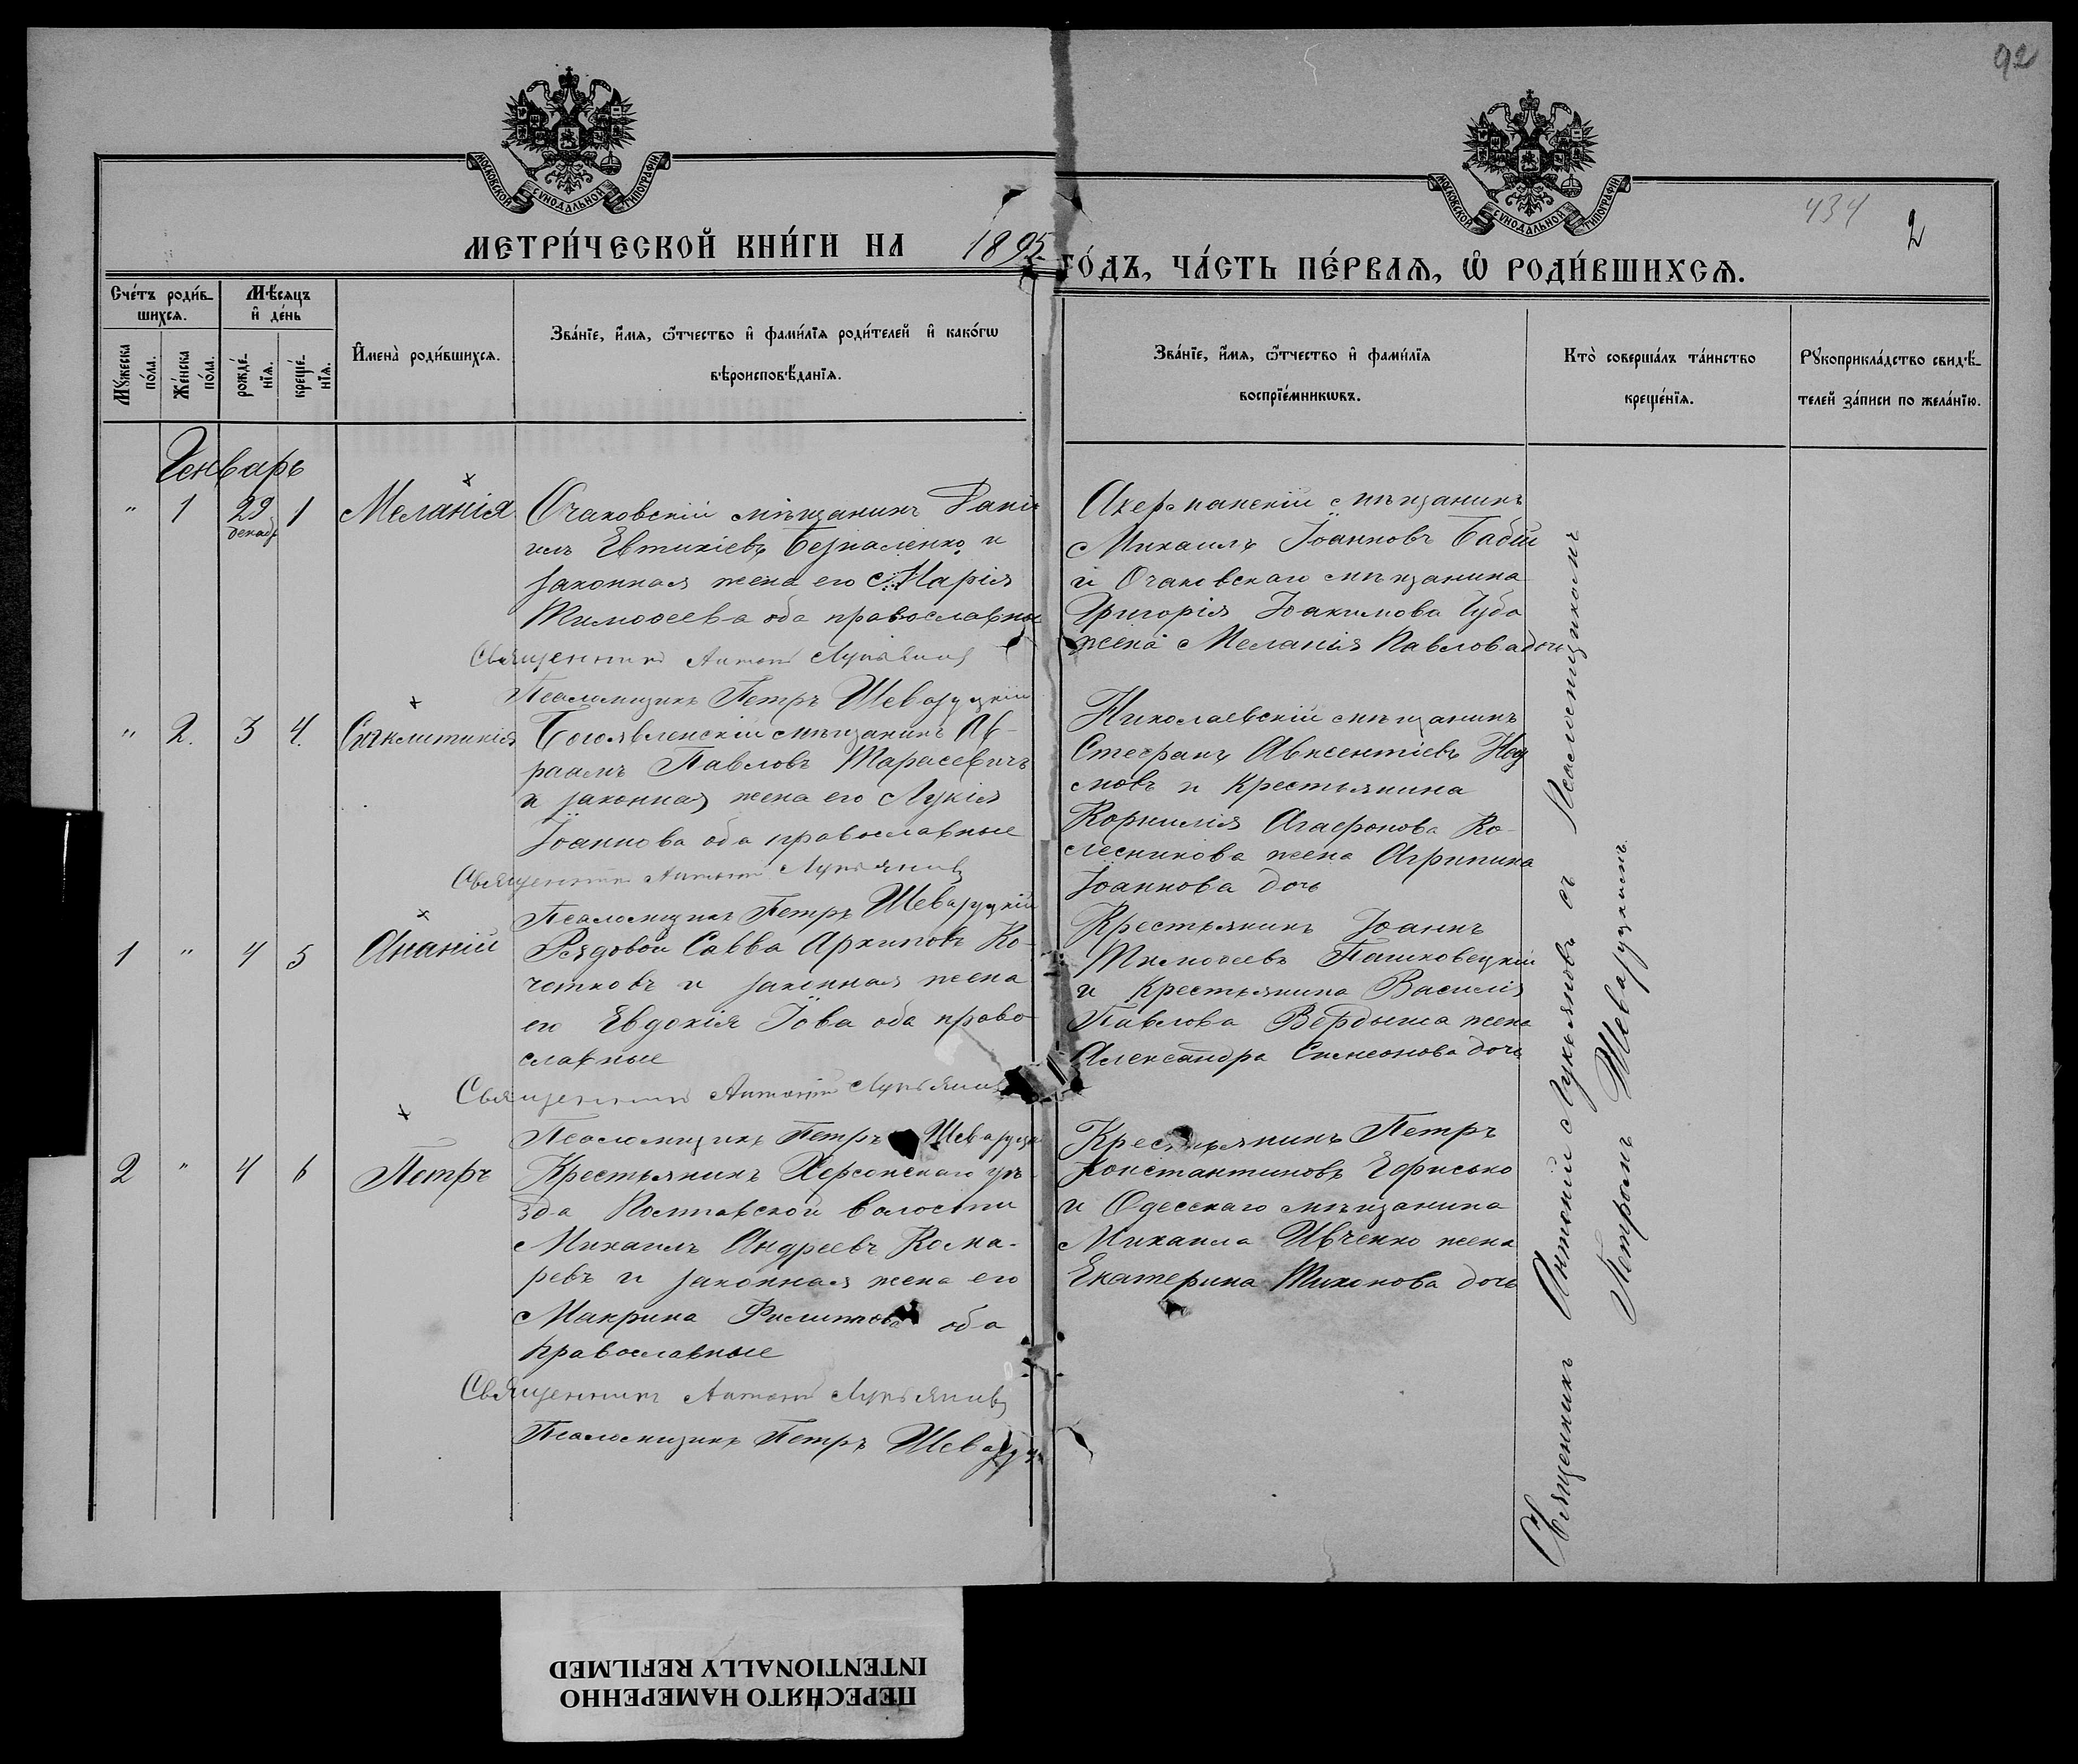 92
МОСКОВСКОЙ СѴНОДАЛЬНОЙ ТИПОГРАФІИ
МОСКОВСКОЙ СѴНОДАЛЬНОЙ ТИПОГРАФІИ
434
2
МЕТРИ́ЧЕСКОЙ КНИ́ГИ НА 1895
ГО́ДЪ, ЧА́СТЬ ПЕ́РВАѦ, Ѽ РОДИ́ВШИХСѦ.
Сче́тъ роди́в-
шихсѧ.
Мѣ́сѧцъ
и҆ де́нь
Мꙋ́жеска
по́ла.
Же́нска
по́ла.
рожде́-
нїѧ.
креще́-
нїѧ.
И҆мена̀ роди́вшихсѧ.
Зва́нїе, и҆́мѧ, ѻ҆́тчество и҆ фами́лїѧ роди́телей и҆ како́гѡ
вѣроисповѣ́данїѧ.
Зва́нїе, и҆́мѧ, ѻ҆́тчество и҆ фами́лїѧ
воспрїе́мникѡвъ.
Кто̀ соверша́лъ та́инство
креще́нїѧ.
Рꙋкоприкла́дство свидѣ́-
телей за́писи по жела́нїю.
Генварь
" 1 29 декаб. 1 Меланія
Очаковскій мѣщанинъ Дані
илъ Евтихіевъ и
законная жена его Марія
Тимоѳеева оба православны
Священникъ Антоній Лукьяновъ
Псаломщикъ Петръ Шеваруцкій
Аккерманскій мѣщанинъ
Михаилъ Іоанновъ Бабій
и Очаковскаго мѣщанина
Григорія Іоакимова Чуба
жена Меланія Павлова дочь
" 2. 3 4. Сѵнклитикія
Богоявленскій мѣщанинъ Ав-
раамъ Павловъ Тарасевичъ
и законная жена его Лукія
Іоаннова оба православные
Священникъ Антоній Лукьяновъ
Псаломщикъ Петръ Шеваруцкій
Николаевскій мѣщанинъ
Стефанъ Авксентіевъ
и Крестьянина
Корнилія Агафонова Ко-
лесникова жена Агрипина
Іоаннова дочь
1 " 4 5 Ананій
Рядовой Савва Архиповъ Ко-
четковъ и законная жена
его Евдокія Іова оба право-
славные
Священникъ Антоній Лукьяновъ
Псаломщикъ Петръ Шеваруцк
Крестьянинъ Іоаннъ
Тимоѳеевъ Пашковецкій
и Крестьянина Василія
Павлова Вербыша жена
Александра Симеонова дочь
2 " 4 6 Петръ
Крестьянинъ Херсонскаго уѣ-
зда Полтавской волости
Михаилъ Андреевъ Кома-
ревъ и законная жена его
Макрина Филиппова оба
православные
Священникъ Антоній Лукьяновъ
Псаломщикъ Петръ Шеваруцк
Крестьянинъ Петръ
Константиновъ
и Одесскаго мѣщанина
Михаила Ивченко жена
Екатерина Тихонова дочь
Священникъ Антоній Лукьяновъ съ Псаломщикомъ
Петромъ Шеваруцкимъ
ПЕРЕСНЯТО НАМЕРЕННО
INTENTIONALLY REFILMED